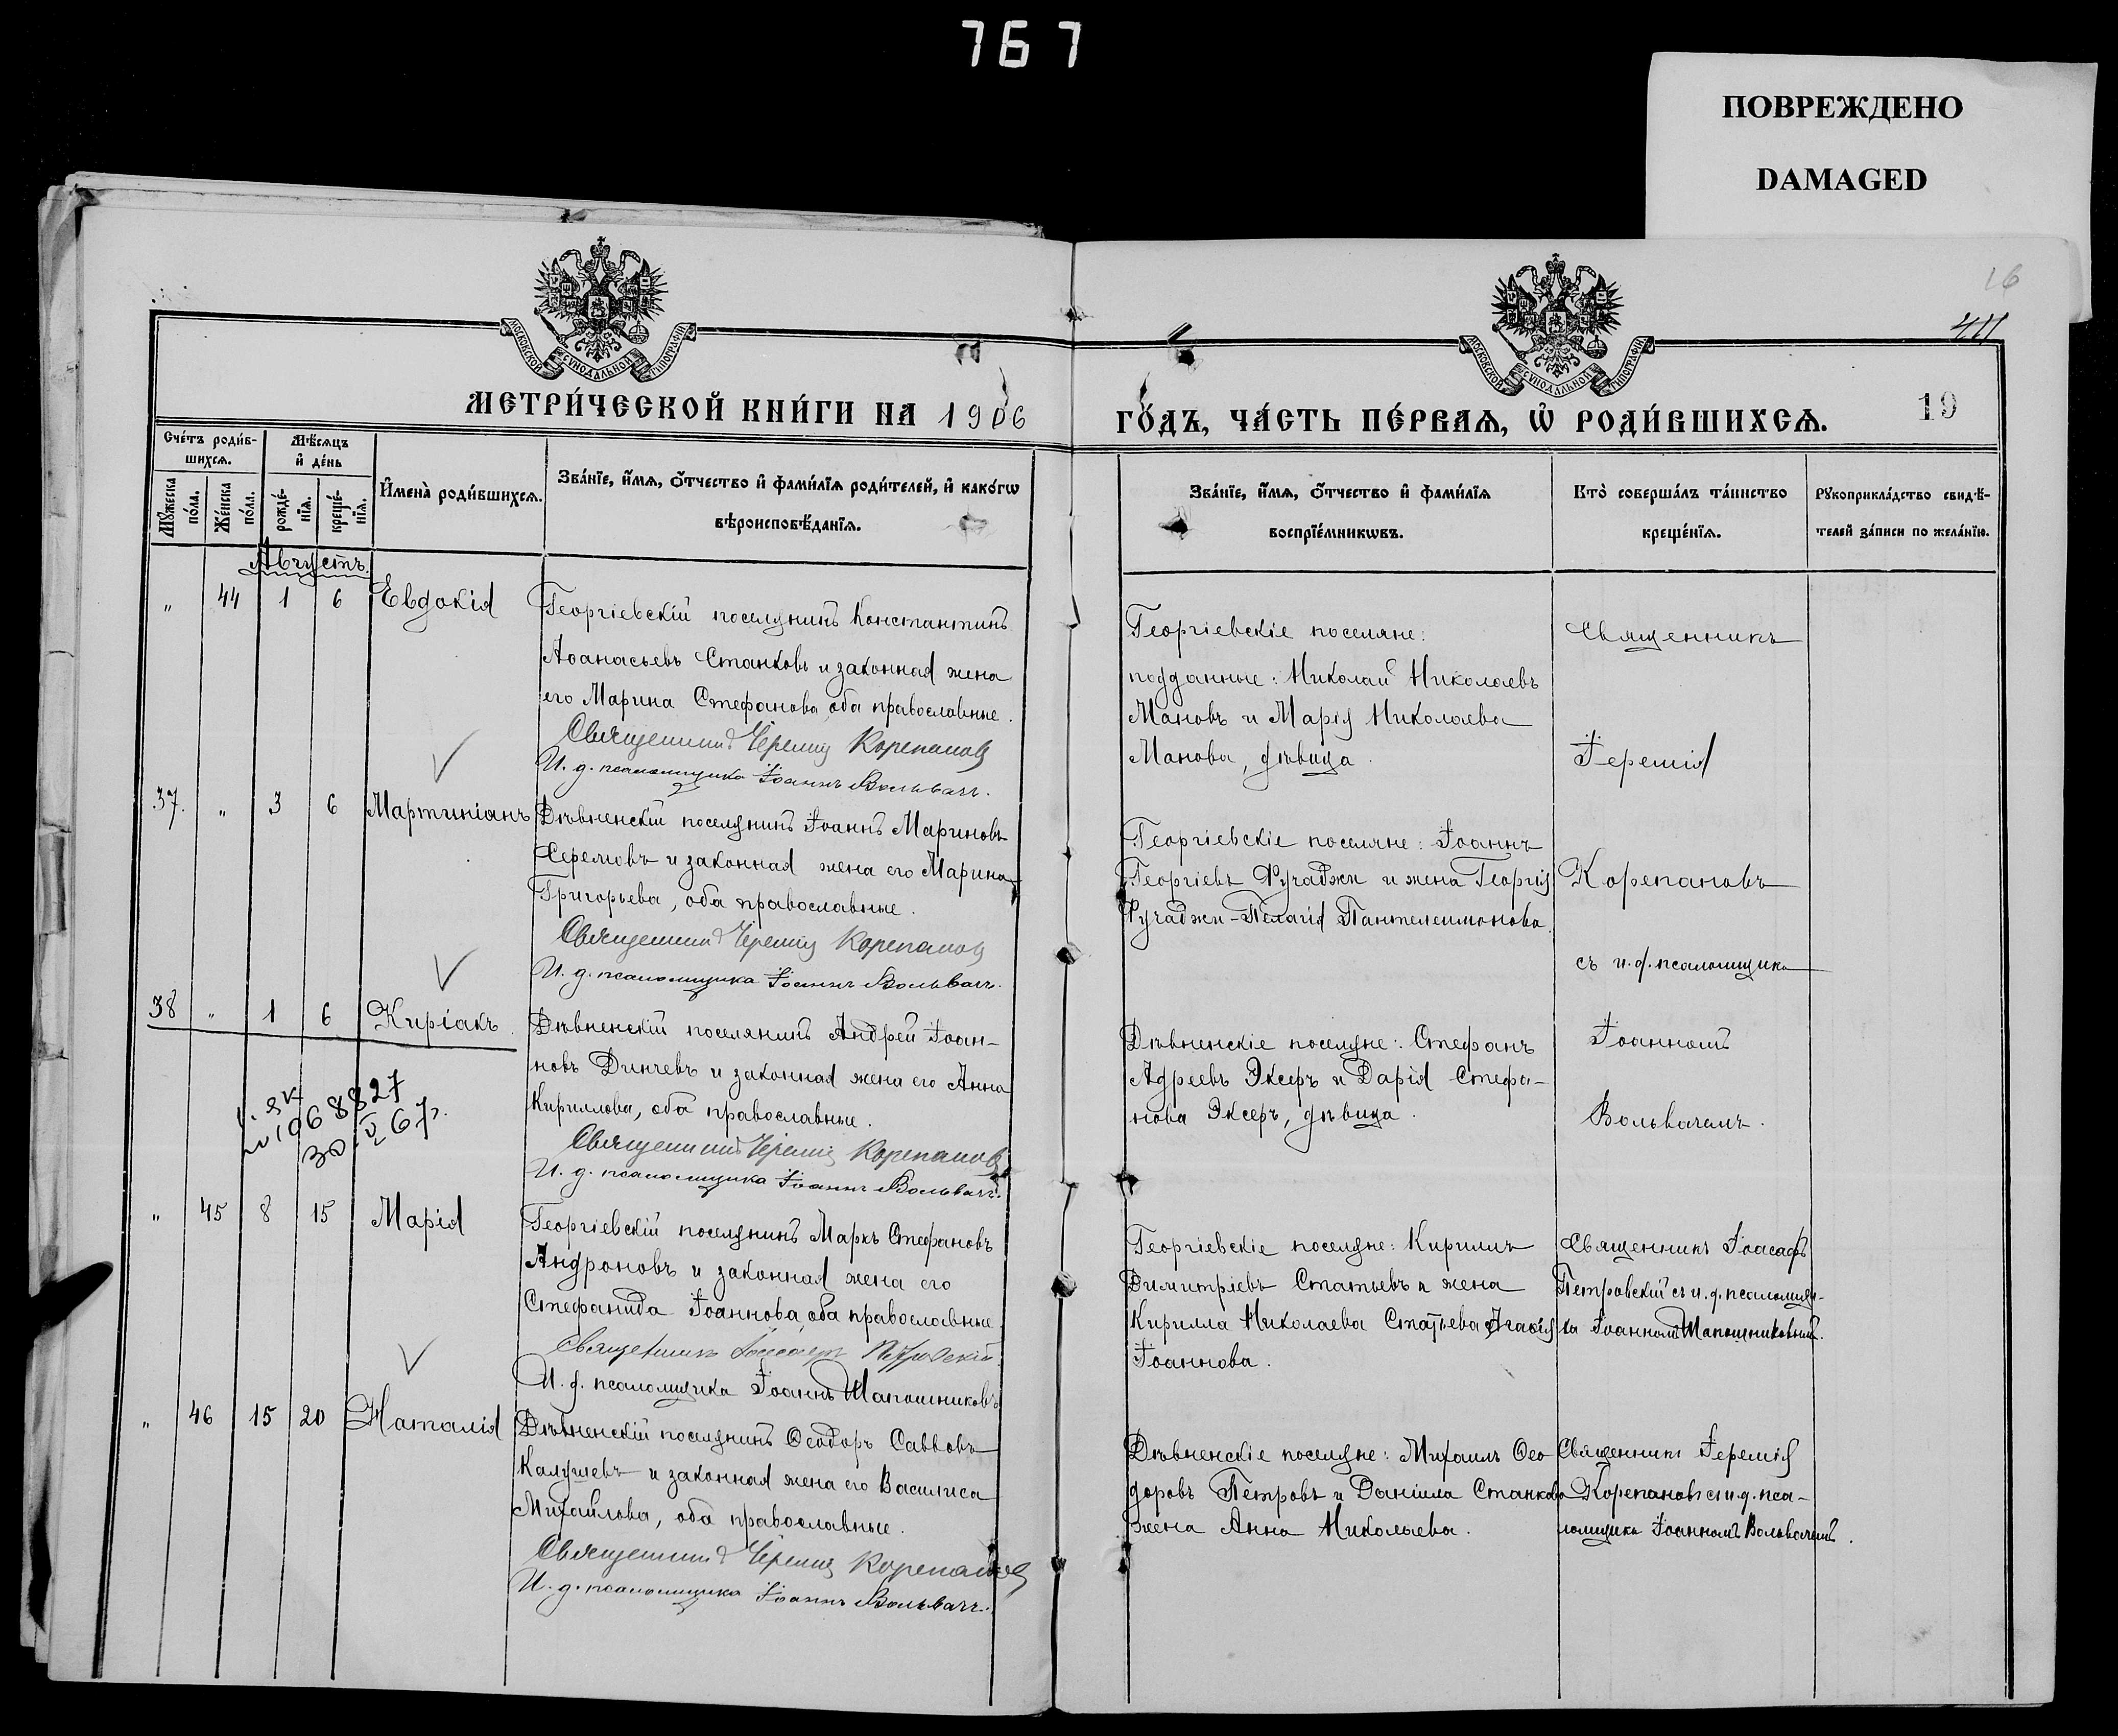 767
ПОВРЕЖДЕНО
DAMAGED
16
МОСКОВСКОЙ СУНОДАЛЬНОЙ ТИПОГРАФІИ
МОСКОВСКОЙ СУНОДАЛЬНОЙ ТИПОГРАФІИ
МЕТРИ́ЧЕСКОЙ КНИ́ГИ НА 1906
ГО́ДЪ, ЧА́СТЬ ПЕ́РВАѦ, Ѡ҆ РОДИ́ВШИХСѦ.
19
Сче́тъ роди́в-
шихсѧ.
Мѣ́сѧцъ
и҆ де́нь
Мꙋ́жеска по́ла.
Же́нска по́ла.
рожде́-
нїѧ.
креще́-
нїѧ.
И҆мена̀ роди́вшихсѧ.
Зва́нїе, и҆́мѧ, ѻ҆́тчество и҆ фами́лїѧ роди́телей, и҆ како́гѡ
вѣроисповѣ́данїѧ.
Зва́нїе, и҆́мѧ, ѻ҆́тчество и҆ фами́лїѧ
воспрїе́мникѡвъ.
Кто̀ соверша́лъ та́инство
креще́нїѧ.
Рꙋкоприкла́дство свидѣ́-
телей за́писи по жела́нїю.
Августъ.
" 44 1 6 Евдокія
Георгіевскій поселянинъ Константинъ
Аѳанасьевъ Станковъ и законная жена
его Марина Стефанова, оба православные.
Священникъ Іеремія Корепановъ
И. д. псаломщика Іоаннъ Вольвачъ.
Георгіевскіе поселяне:
подданные: Николай Николаевъ
Мановъ и Марія Николаева
Манова, дѣвица.
Священникъ
Іеремія
37. " 3 6 Мартиніанъ
Дѣвненскій поселянинъ Іоаннъ Мариновъ
и законная жена его Марина
Григорьева, оба православные.
Священникъ Іеремія Корепановъ
И. д. псаломщика Іоаннъ Вольвачъ.
Георгіевскіе поселяне: Іоаннъ
Георгіевъ Фучаджи и жена Георгія
Фучаджи - Пелагія Пантелеимонова.
Корепановъ
съ и. д. псаломщика
38 " 1 6 Киріакъ.
Дѣвненскій поселянинъ Андрей Іоан-
новъ Динчевъ и законная жена его Анна
Кириллова, оба православные.
Священникъ Іеремія Корепановъ
И. д. псаломщика Іоаннъ Вольвачъ.
Дѣвненскіе поселяне: Стефанъ
Адреевъ Эксеръ и Дарія Стефа-
нова Эксеръ, дѣвица.
Іоанномъ
Вольвачемъ.
1068827
30 V 67г.
" 45 8 15 Марія
Георгіевскій поселянинъ Маркъ Стефановъ
Андроновъ и законная жена его
Стефанида Іоаннова, оба православные.
Священникъ Іоасафъ Петровскій
И. д. псаломщика Іоаннъ Шапошниковъ
Георгіевскіе поселяне: Кириллъ
Димитріевъ Статьевъ и жена
Кирилла Николаева Статьева Агаѳія
Іоаннова.
Священникъ Іоасафъ
Петровскій съ и. д. псаломщи-
ка Іоанномъ Шапошниковымъ.
" 46 15 20 Наталія
Дѣвненскій поселянинъ Ѳеодоръ Савовъ
Калушевъ и законная жена его Василиса
Михайлова, оба православные.
Священникъ Іеремія Корепановъ
И. д. псаломщика Іоаннъ Вольвачъ.
Дѣвненскіе поселяне: Михаилъ Ѳео-
доровъ Петровъ и Даніила Станкова
жена Анна Николаева.
Священникъ Іеремія
Корепановъ съ и. д. пса-
ломщика Іоанномъ Вольвачемъ.